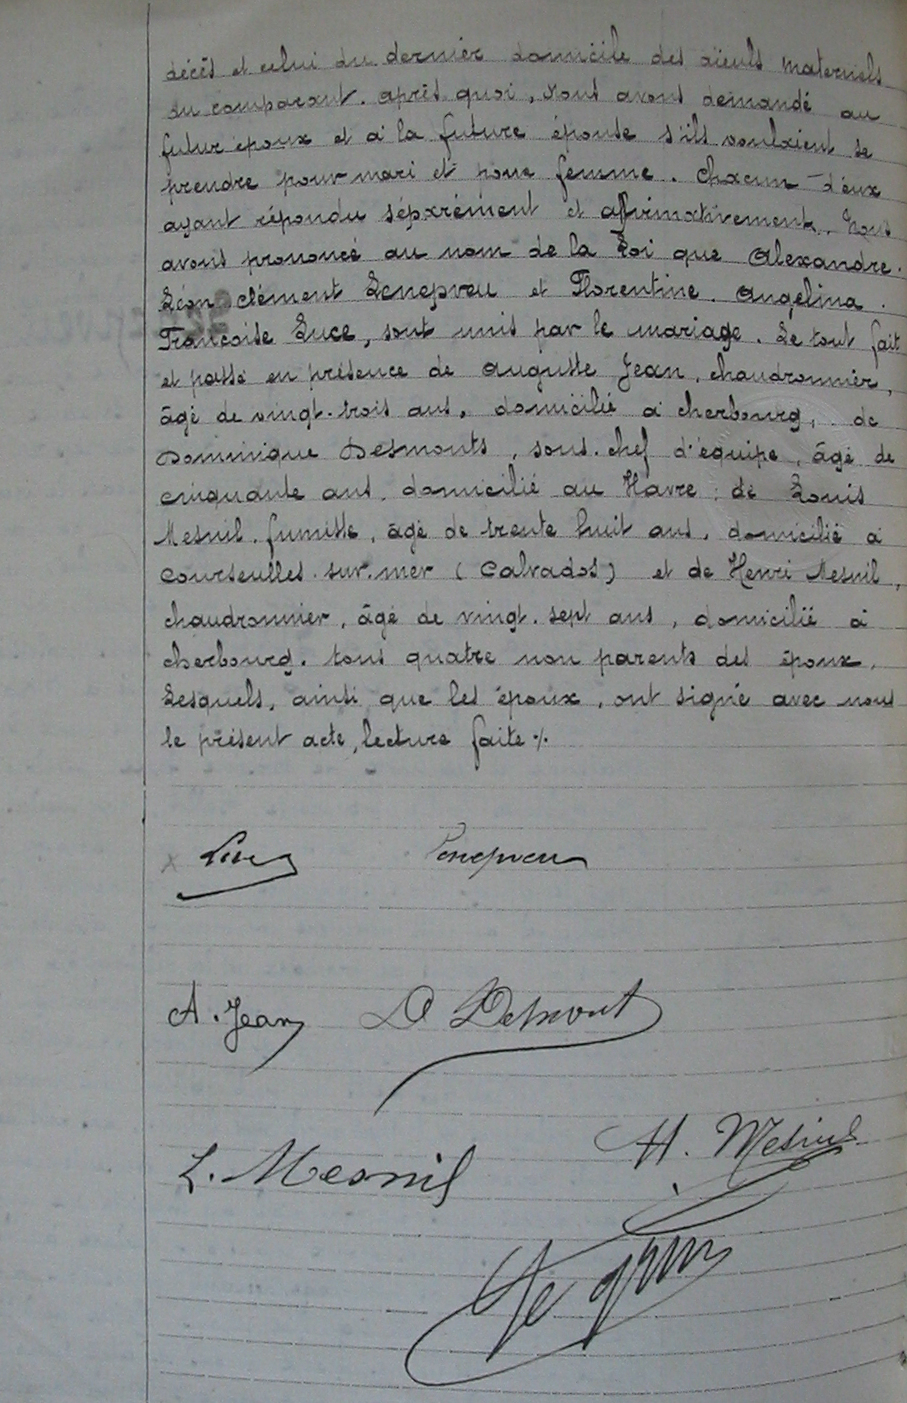 décès et celui du dernier domicile des aïeuls maternels
du comparant. après quoi, Nous avons demandé au
futur époux et à la future épouse s'ils voulaient se
prendre pour mari et pour femme. Chacun d'eux
ayant répondu séparément et affirmativement, Nous
avons prononcé au nom de la Loi que Alexandre.
Léon Clément Lenepveu et Florentine. Angélina.
Françoise Luce, sont unis par le mariage. Le tout fait
et passé en présence de Auguste Jean, chaudronnier,
âgé de vingt-trois ans, domicilié à Cherbourg, de
Dominique Desmonts, sous-chef d'équipe, âgé de
cinquante ans, domicilié au Havre; de Louis
Mesnil, fumiste, âgé de trente huit ans, domicilié à
Courseulles-sur-mer (Calvados) et de Henri Mesnil,
chaudronnier, âgé de vingt-sept ans, domicilié à
Cherbourg. tous quatre non parents des époux.
Lesquels, ainsi que les époux, ont signé avec nous
le présent acte, lecture faite ./.
Luce Lenepveu
A. Jean D Desmont
H. Mesnil
L. Mesnil